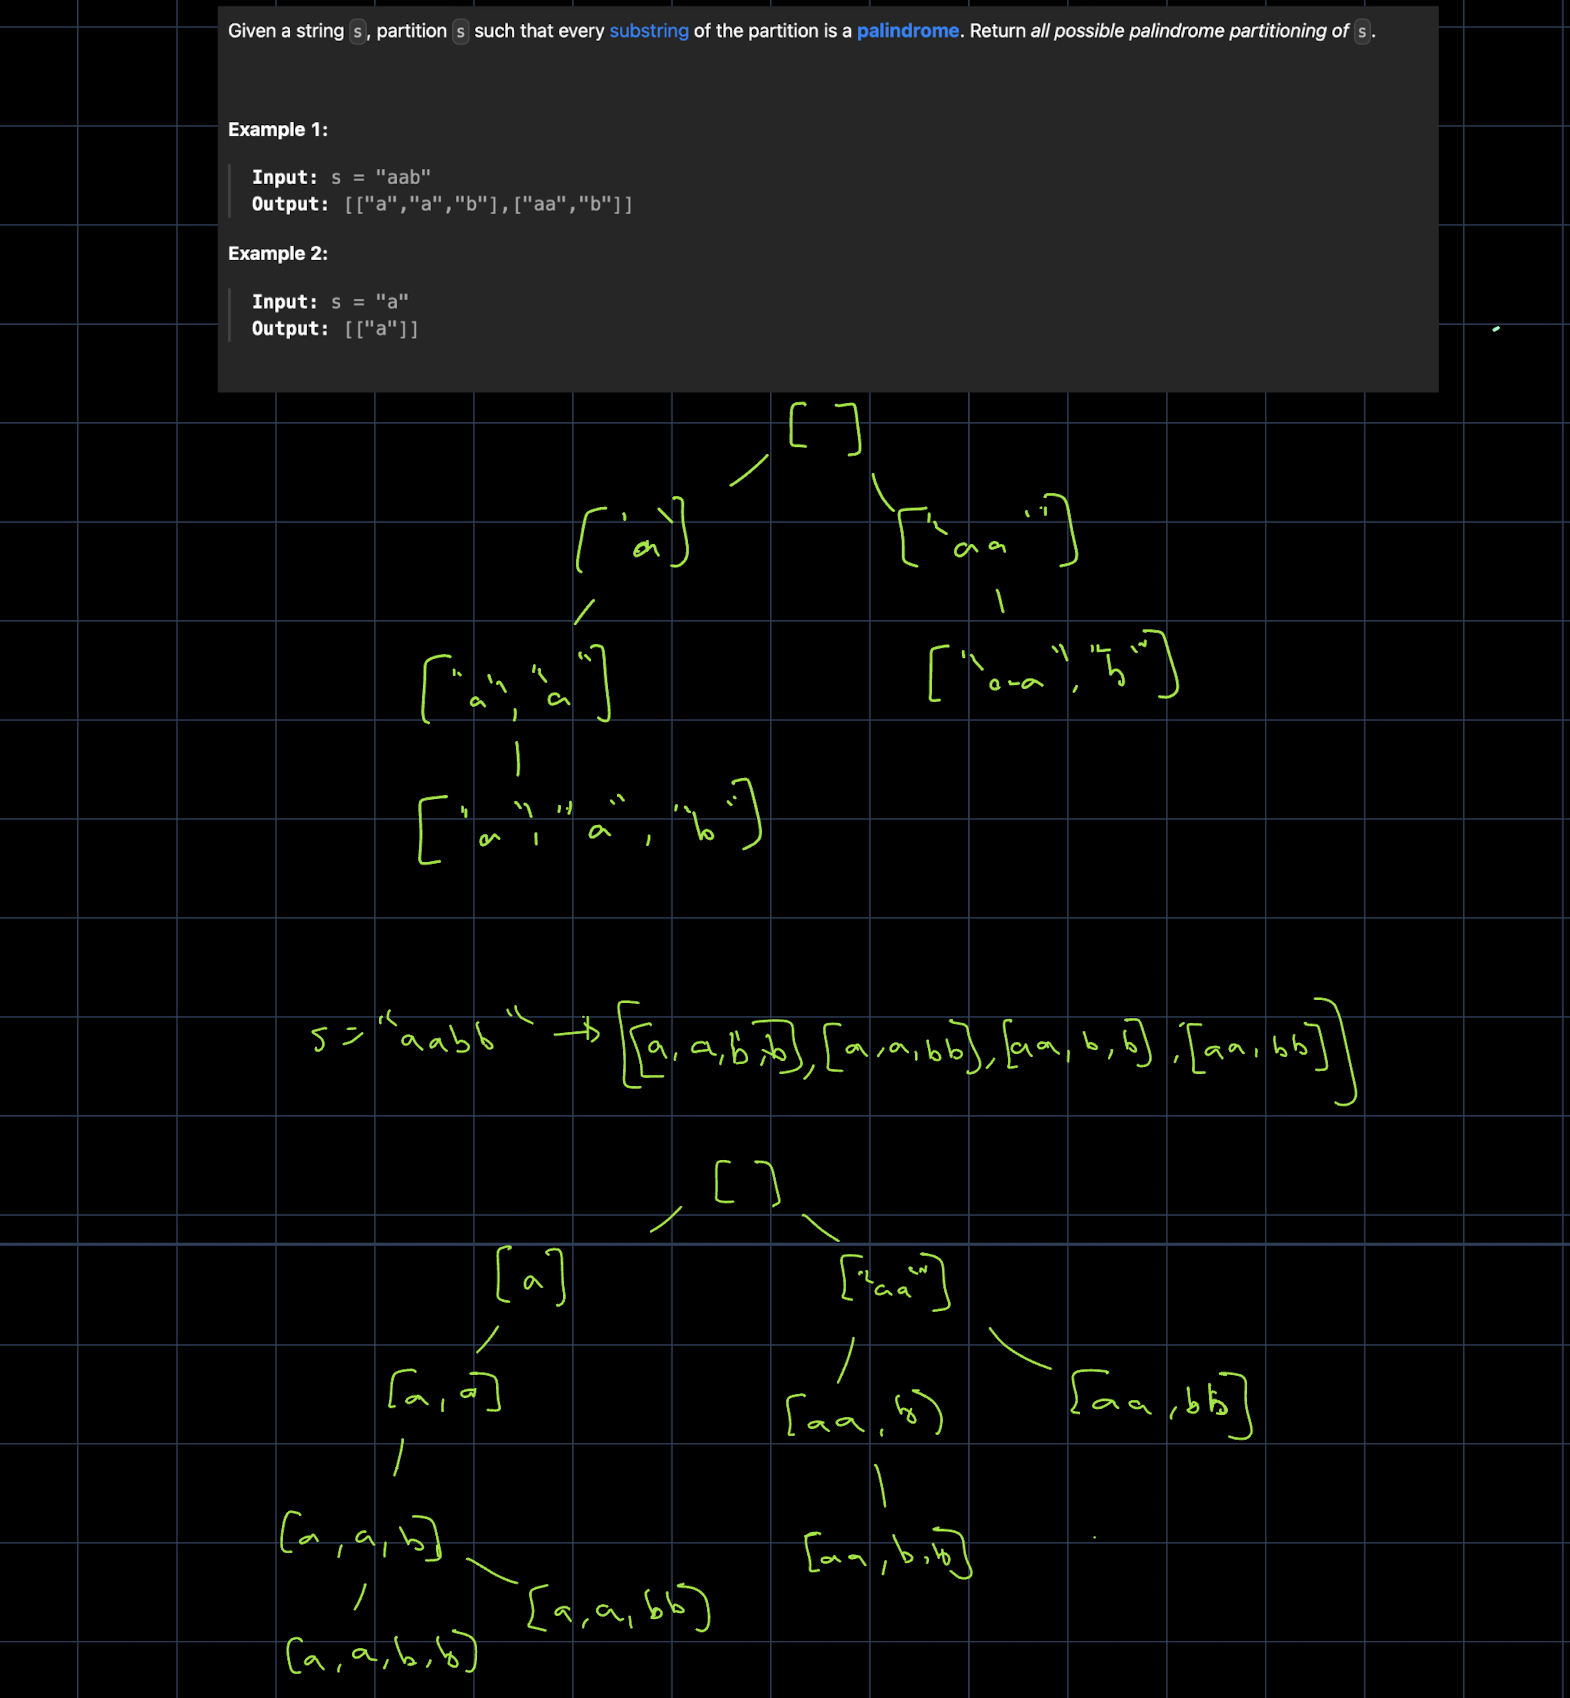 Given a string s, partition s such that every substring of the partition is a palindrome. Return all possible palindrome partitioning of s.
Example 1:
Input: s = "aab"
Output: [["a","a","b"],["aa","b"]]
Example 2:
Input: s = "a"
Output: [["a"]]
[ ]
['a'] ["aa"]
["a", "a"] ["aa", "b"]
["a", "a", "b"]
s = "aabb" → [[a, a, b, b], [a, a, bb], [aa, b, b], [aa, bb]]
[ ]
[a] ["aa"]
[a, a] [aa, b] [aa, bb]
[a, a, b] [aa, b, b]
[a, a, bb]
[a, a, b, b]